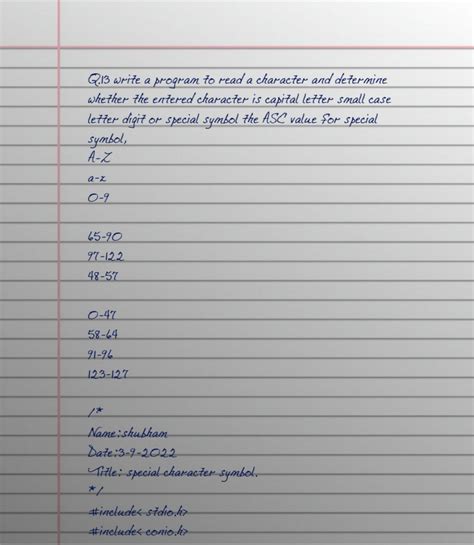 Q.13 write a program to read a character and determine
whether the entered character is capital letter small case
letter digit or special symbol the ASC value for special
symbol,
A-Z
a-z
0-9
65-90
97-122
48-57
0-47
58-64
91-96
123-127
/*
Name:shubham
Date:3-9-2022
Title: special character symbol.
*/
#include< stdio.h>
#include< conio.h>